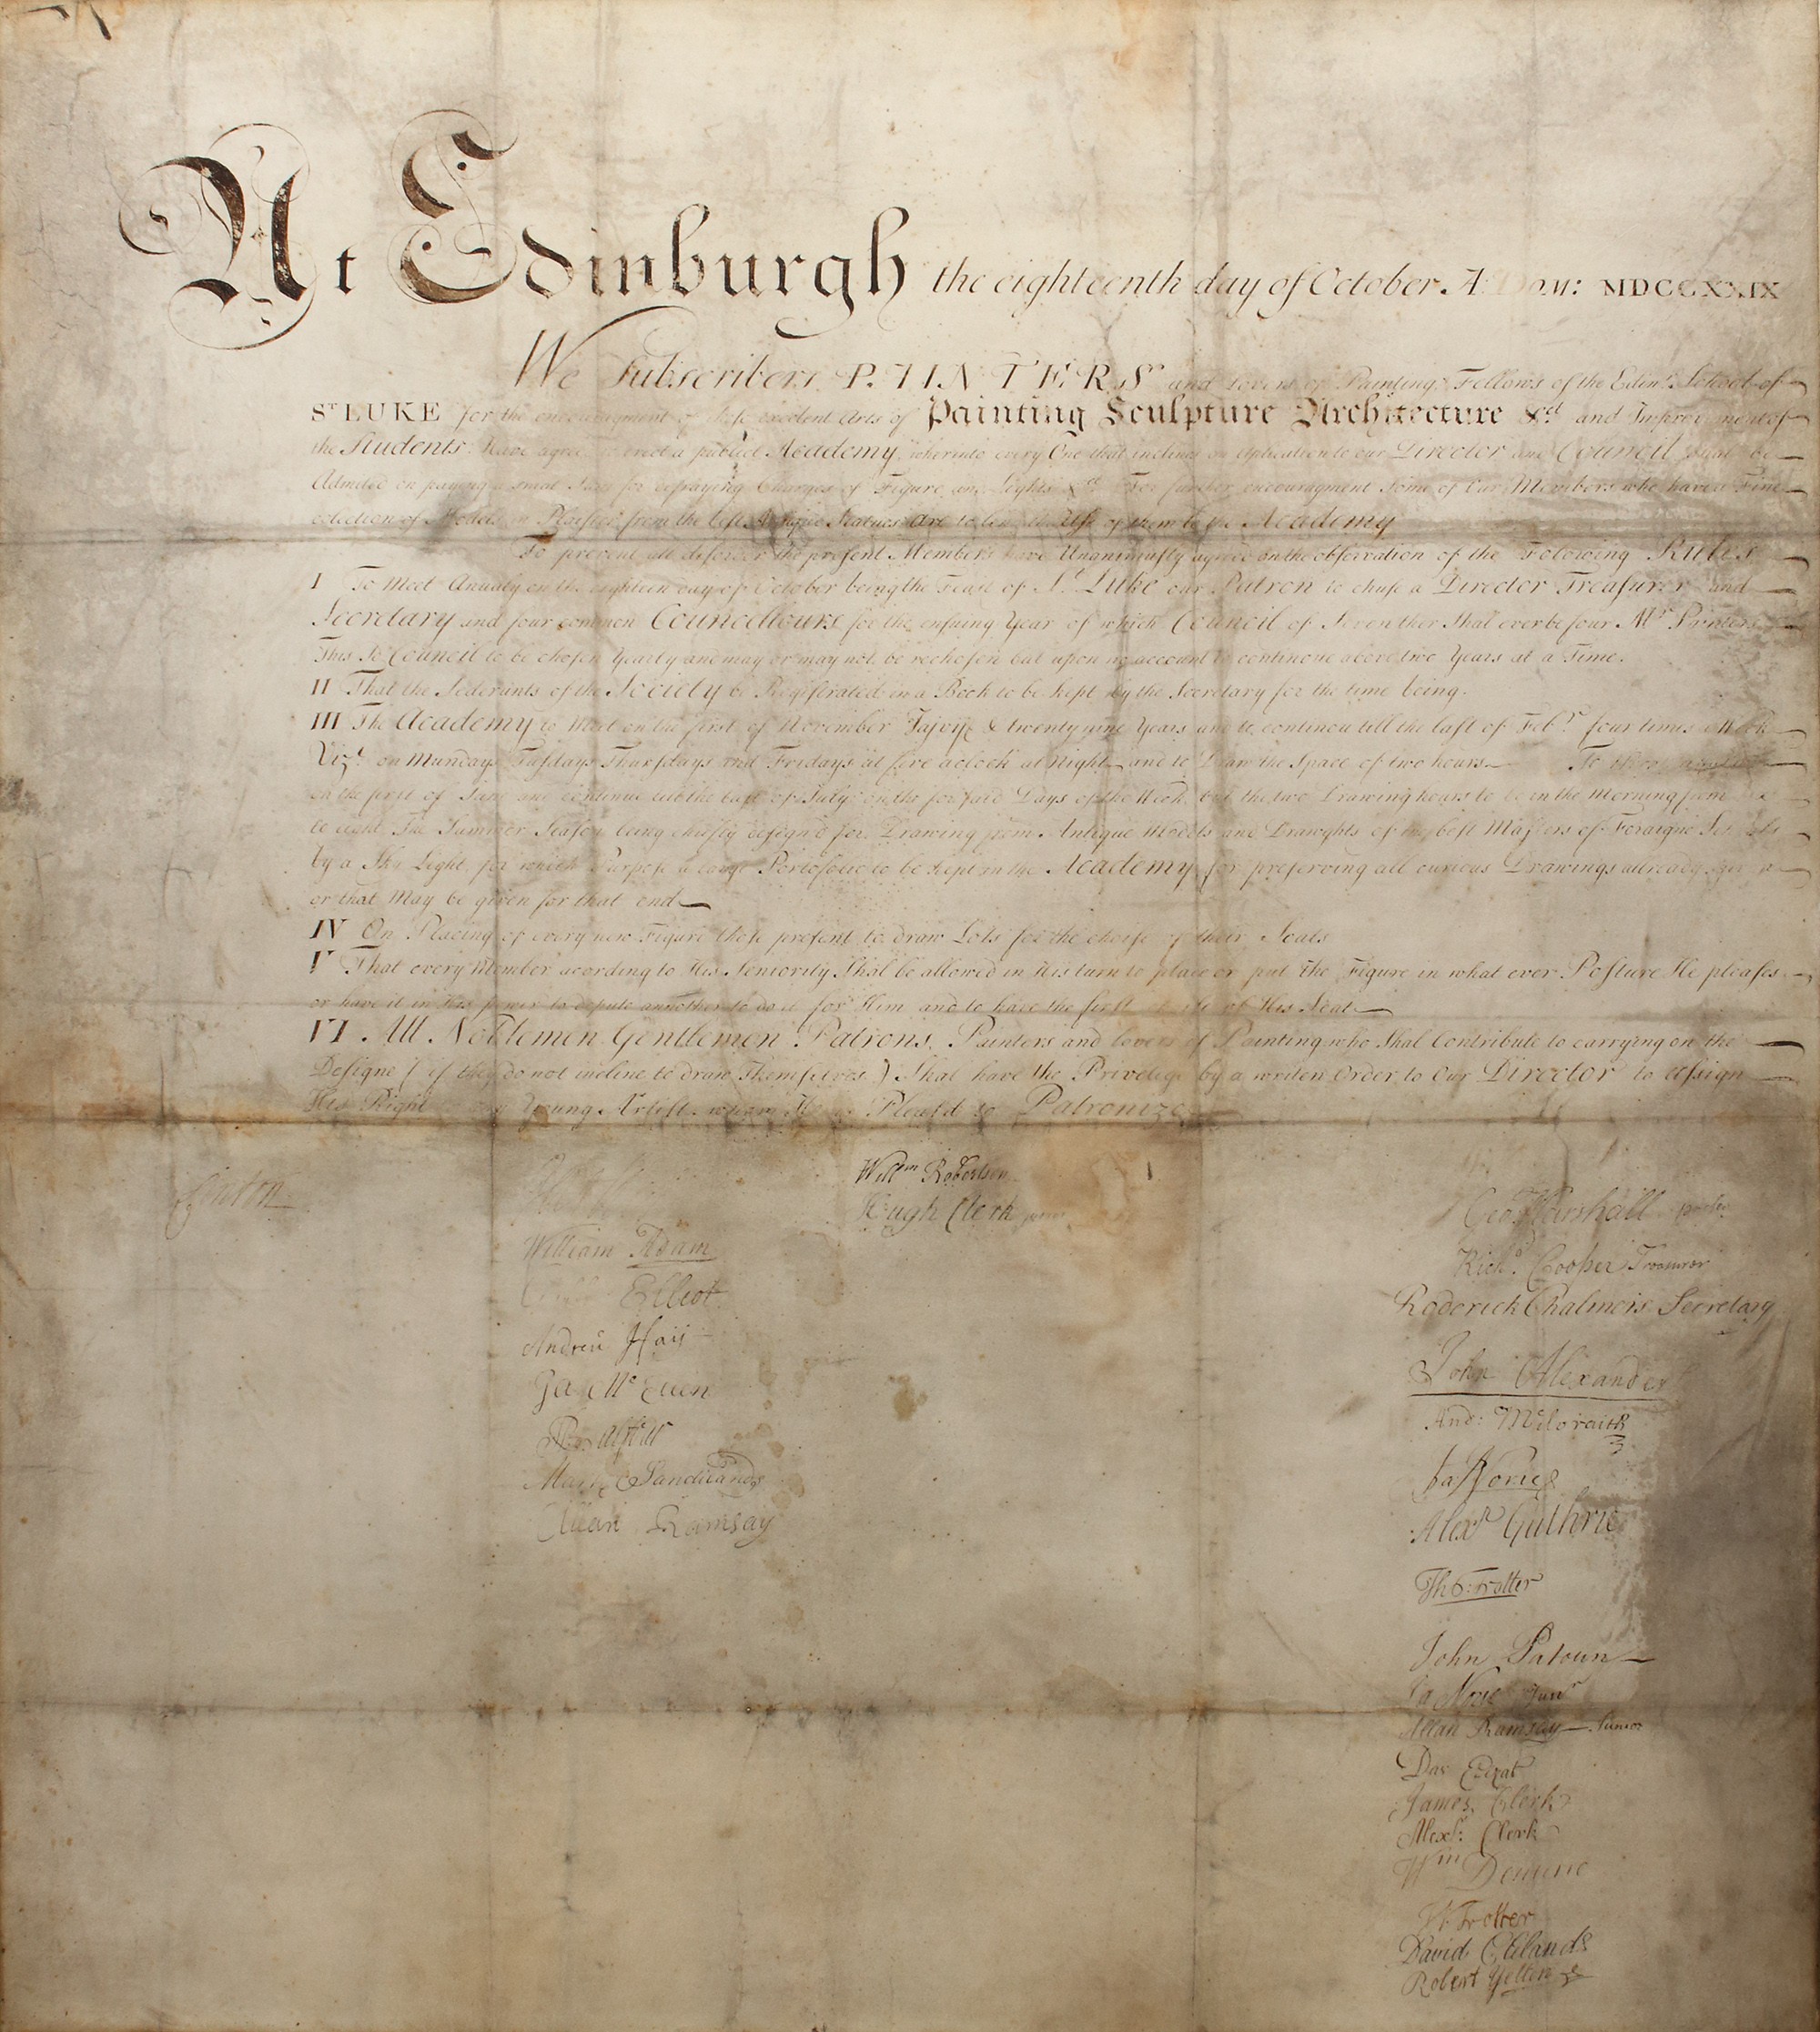 At Edinburgh the eighteenth day of October A: Dom: MDCCXXIX
We Subscribers PAINTERS and Lovers of Painting, Fellows of the Edinr. School of
ST LUKE for the encouragment of these excelent Arts of Painting Sculpture Architecture &ct and Improvment of
the Students: Have agreed to erect a publict Academy, wherinto every One that inclines on aplication to our Director and Council shal be
Admited on paying a smal Sum for defraying Charges of Figure and Lights &ct For further encouragment Some of Our Members who have a Fine
colection of Models in Plaister from the best Antique Statues are to lend the Use of them to the Academy
To prevent all disorder the present Members have Unanimusly agreed on the observation of the Folowing Rules
I To Meet Anualy on the eighteen day of October being the Feast of St Luke our Patron to chuse a Director Treasurer and
Secretary and four common Councellours for the ensuing Year of which Council of Seven ther Shal ever be four Mr Printers
This Sd Council to be chosen Yearly and may or may not be rechosen but upon no account to continoue above two Years at a Time.
II That the Sederunts of the Society be Registrated in a Book to be kept by the Secretary for the time being.
III The Academy to Meet on the first of November Jajvijc & twenty nine Years and to continou till the last of Febr. four times a Week
Vizt. on Mundays Tusdays Thursdays and Fridays at five aclock at night and to Draw the Space of two hours To
on the first of June and continue till the last of July on the forsaid Days of the Week, but the two Drawing hours to be in the Morning from
to eight The Summer Season being chiefly design'd for Drawing from Antique Models and Drawghts of the best Masters of Foraigne
by a Sky Light, for which Purpose a large Portofolio to be kept in the Academy for preserving all curious Drawings allready given
or that May be given for that end
IV On Placing of every new Figure those present to draw Lots for the choise of their Seats
V That every Member acording to His Seniority Shal be allowed in his turn to place or put the Figure in what ever Posture He pleases
or have it in His power to depute annother to do it for Him and to have the first of His Seat
VI All Noblemen Gentlemen Patrons, Painters and lovers of Painting who Shal Contribute to carrying on the
Designe ( if they do not incline to draw Themselves ) Shal have the Privelige by a writen Order to Our Director to assign
His Right Young Artist whom He is Pleas'd to Patronize
Linton
William Adam
Elliot
Andrew Hay
Ja McEuen
Mark Sandilands
Allan Ramsay
Willm Robertson
Hugh Clerk
Geo Marshall
Richd. Cooper Treasurer
Roderick Chalmers Secretary
John Alexander
And: McIlvraith
Ja Norie
Alexr Guthrie
Tho: Trotter
John Patoun
Ja Norie Junr
Allan Ramsay Junior
Dav
James Clerk
Alexr: Clerk
Wm Denune
Trotter
David Clelands
Robert